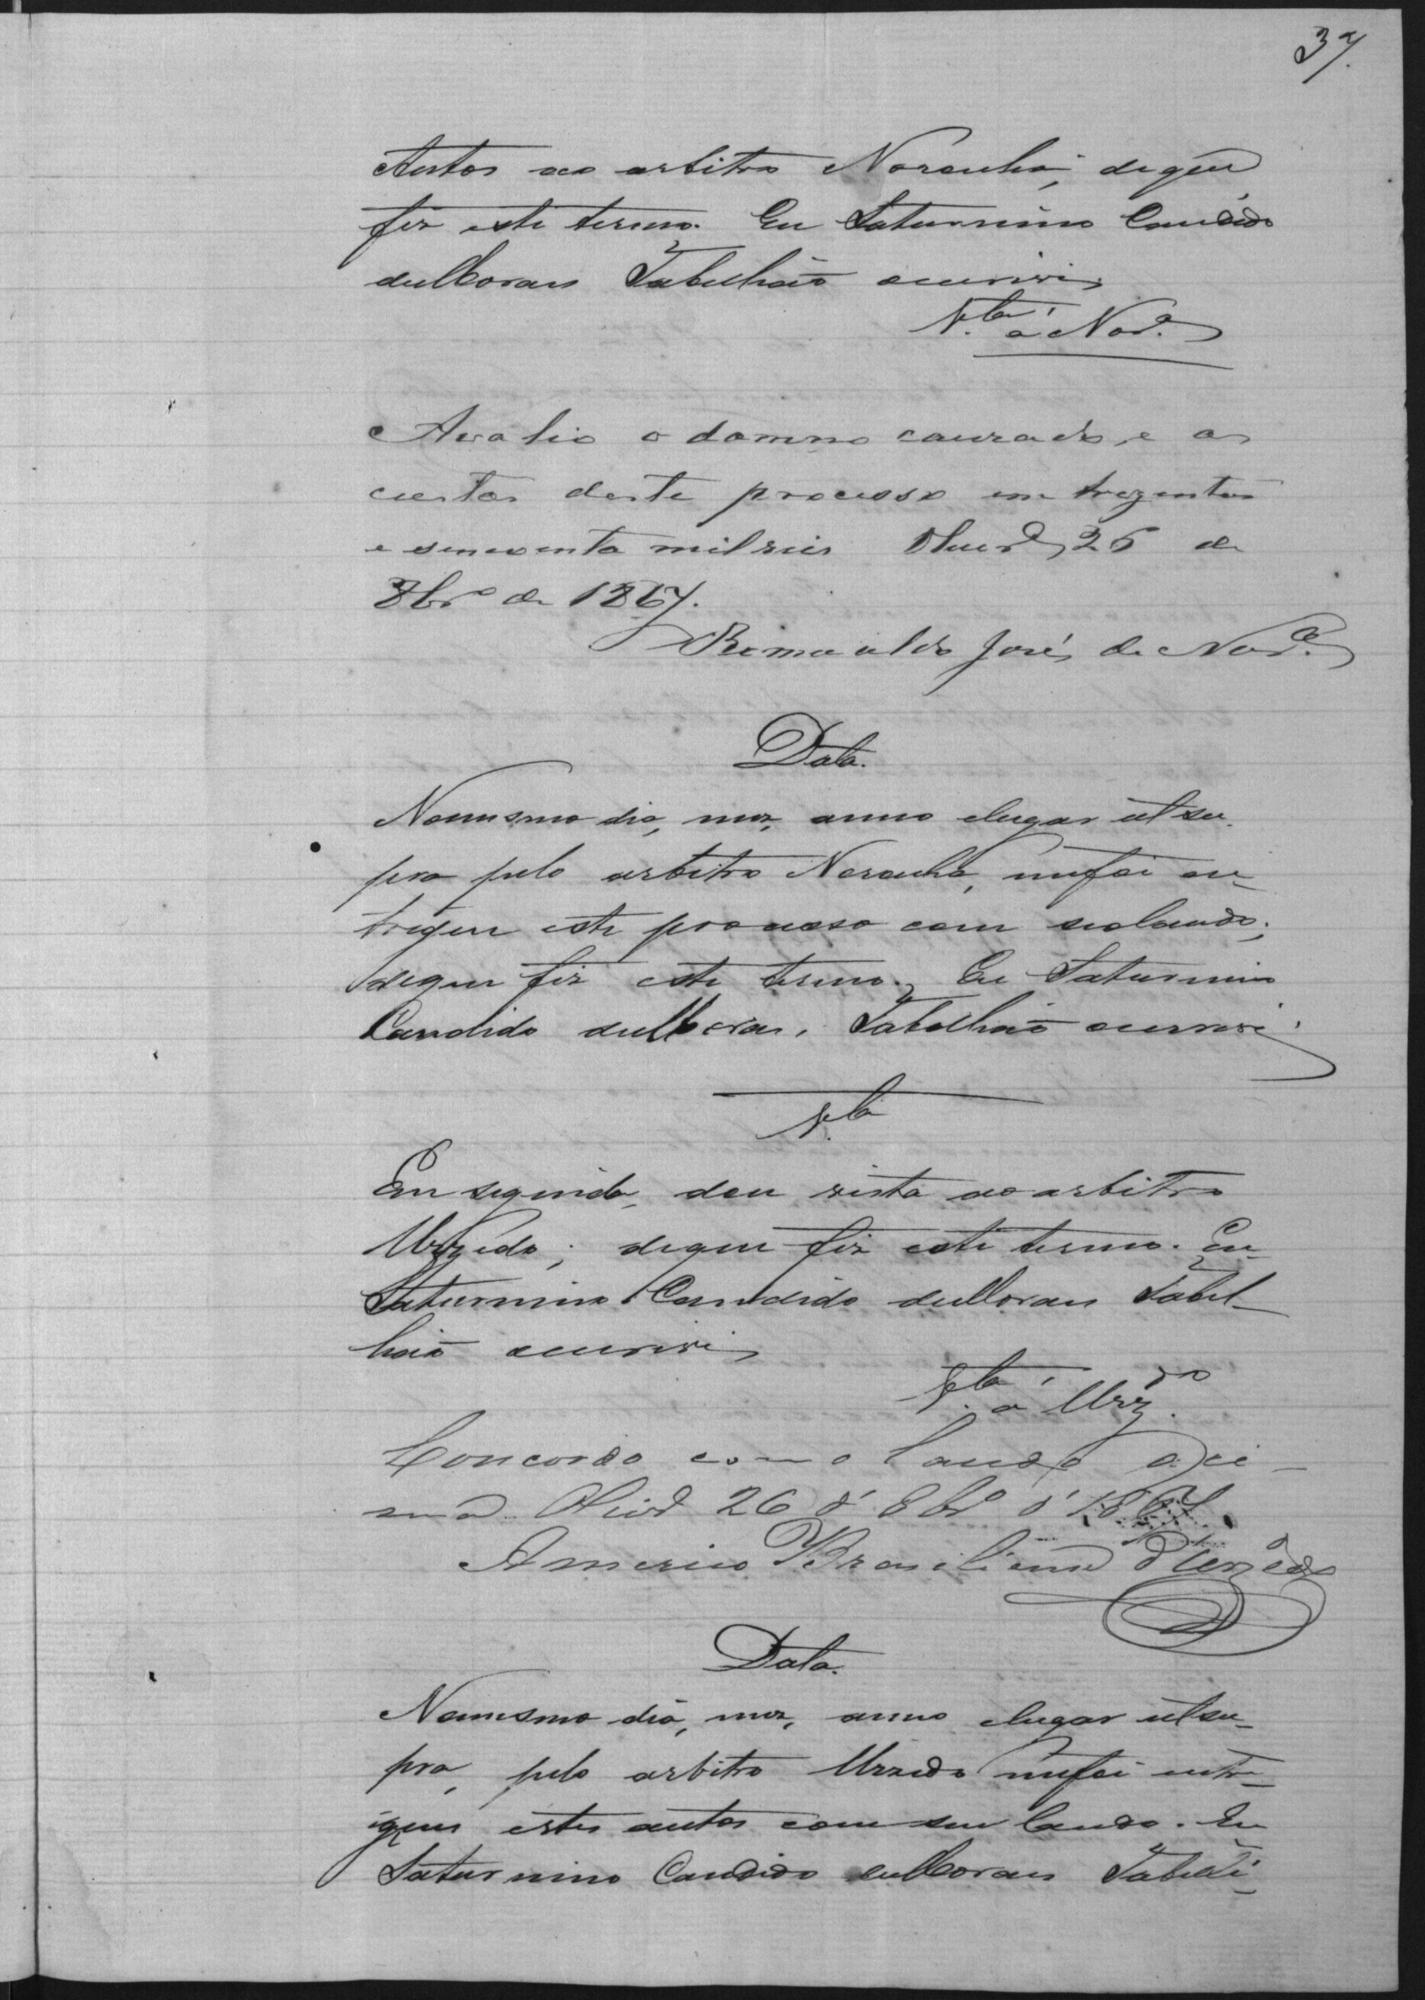 37.
Autos ao arbitro Noronha, de que
fiz este termo. Eu Saturnino Candido
de Moraes Tabelliaõ escrevi
V.ta a Nor.a
Avalio o damno causado, e as
custas deste processo em trezentos
e sincoenta mil reis Oliver.a 26 de
8br.o de 1867.
Romualdo José de Nor.a
Data.
No mesmo dia, mez, anno e lugar ut su-
pra pelo arbitro Noronha, me foi en-
tregue este processo com seo laudo;
de que fiz este termo. Eu Saturnino
Candido de Moraes, Tabelhaõ escrevi.
V.ta
Em seguida, dou vista ao arbitro
Urzedo; de que fiz este termo. Eu
Saturnino Candido de Moraes Tabel-
haõ escrevi
V.ta a Urz.do
Concordo com o laudo aci-
ma. Olivr.a 26 d' 8br.o d' 1867
Americo Brasiliano d'Urzedo
Data.
No mesmo dia, mez, anno e lugar ut su-
pra, pelo arbitro Urzedo me foi entre-
gues estes autos com seu laudo. Eu
Saturnino Candido de Moraes Tabelli-